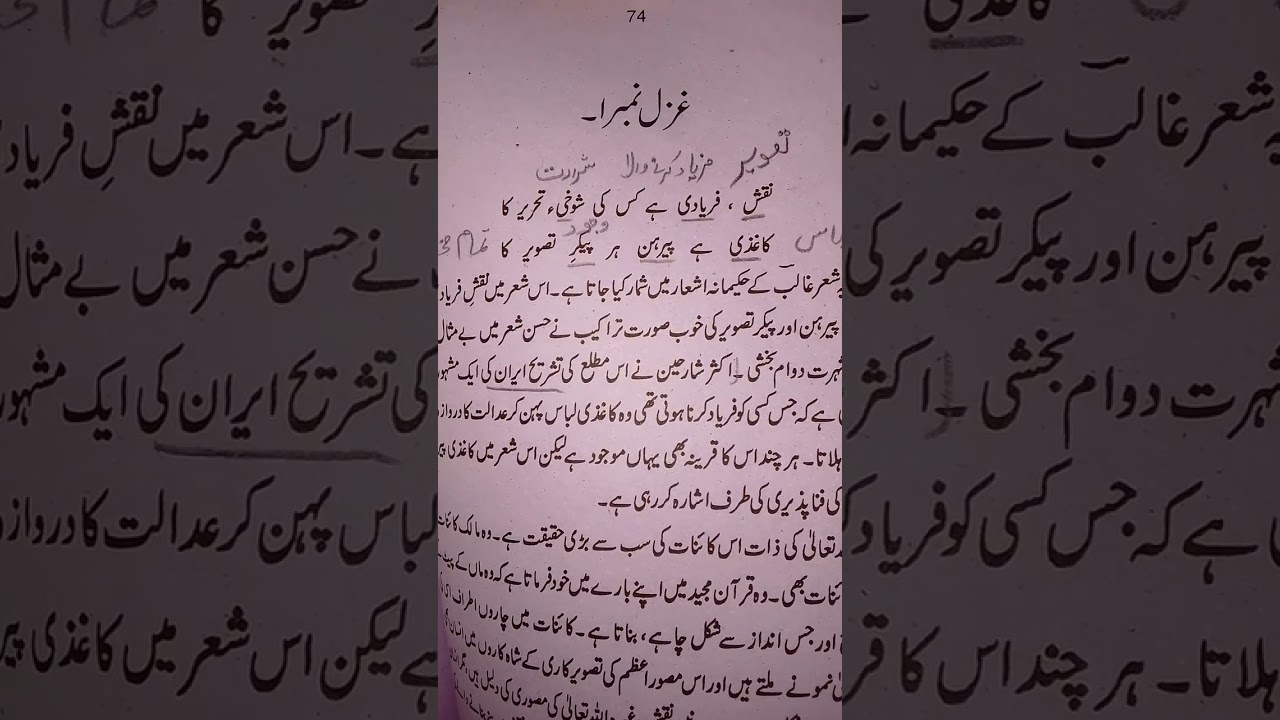 74
غزل نمبر ۱۔
تصویر فریاد کرنے والا شرارت
نقش ، فریادی ہے کس کی شوخیٔ تحریر کا
وجود
کاغذی ہے پیرہن ہر پیکرِ تصویر کا
شعر غالب کے حکیمانہ اشعار میں شمار کیا جاتا ہے۔ اس شعر میں نقشِ فریاد
پیرہن اور پیکر تصویر کی خوب صورت تراکیب نے حسن شعر میں بے مثال
شہرت دوام بخشی ۔ اکثر شارحین نے اس مطلع کی تشریح ایران کی ایک مشہور
ہے کہ جس کسی کو فریاد کرنا ہوتی تھی وہ کاغذی لباس پہن کر عدالت کا دروازہ
ہلاتا۔ ہر چند اس کا قرینہ بھی یہاں موجود ہے لیکن اس شعر میں کاغذی پیر
کی فنا پذیری کی طرف اشارہ کر رہی ہے۔
تعالیٰ کی ذات اس کائنات کی سب سے بڑی حقیقت ہے۔ وہ مالک کائنات
ئنات بھی۔ وہ قرآن مجید میں اپنے بارے میں خود فرماتا ہے کہ وہ ماں کے پیٹ
اور جس انداز سے شکل چاہے، بناتا ہے۔ کائنات میں چاروں اطراف
نمونے ملتے ہیں اور اس مصور اعظم کی تصویر کاری کے شاہ کاروں میں انسان
اللہ تعالیٰ کی مصوری کی دلیل ہیں